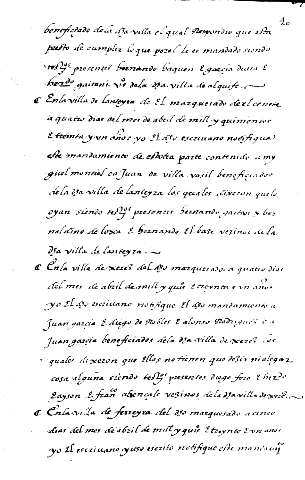 beneficiado de la dha villa el qual Respondio que esta
presto de cumplir lo que por el le es mandado siendo
tes°s presentes hernando baquen E garcia E
her° gaitan v°s de la dha villa de alquife
En la villa de lanteyra del marquesado del cenete
a quatro dias del mes de abril de mill y quinientos
E treinta y un años yo El dho escrivano notifique
este mandamiento de estotra parte contenido a my
guel montiel E a Juan de villa beneficiados
de la dha villa de lanteyra los quales dixeron que lo
oyan siendo tes°s presentes hernando gaitan y ber
naldino de lorca E hernando El vezinos de la
dha villa de lanteyra
En la villa de xerez del dho marquesado a quatro dias
del mes de abril de mill y qui°s E treynta E un años
yo El dho escrivano notifique El dho mandamiento a
Juan garcia E diego de Robles E alonso Rodrigues E a
Juan garcia beneficiados de la dha villa de xerez los
quales dixeron que Ellos no tienen que dezir ni alegar
cosa alguna siendo tes°s presentes diego E
E fran° vezinos de la dha villa de xerez
En la villa de ferreyra del dho marquesado a cinco
dias del mes de abril de mill y qui°s E treynta E un años
yo El escrivano yuso escrito notifique este